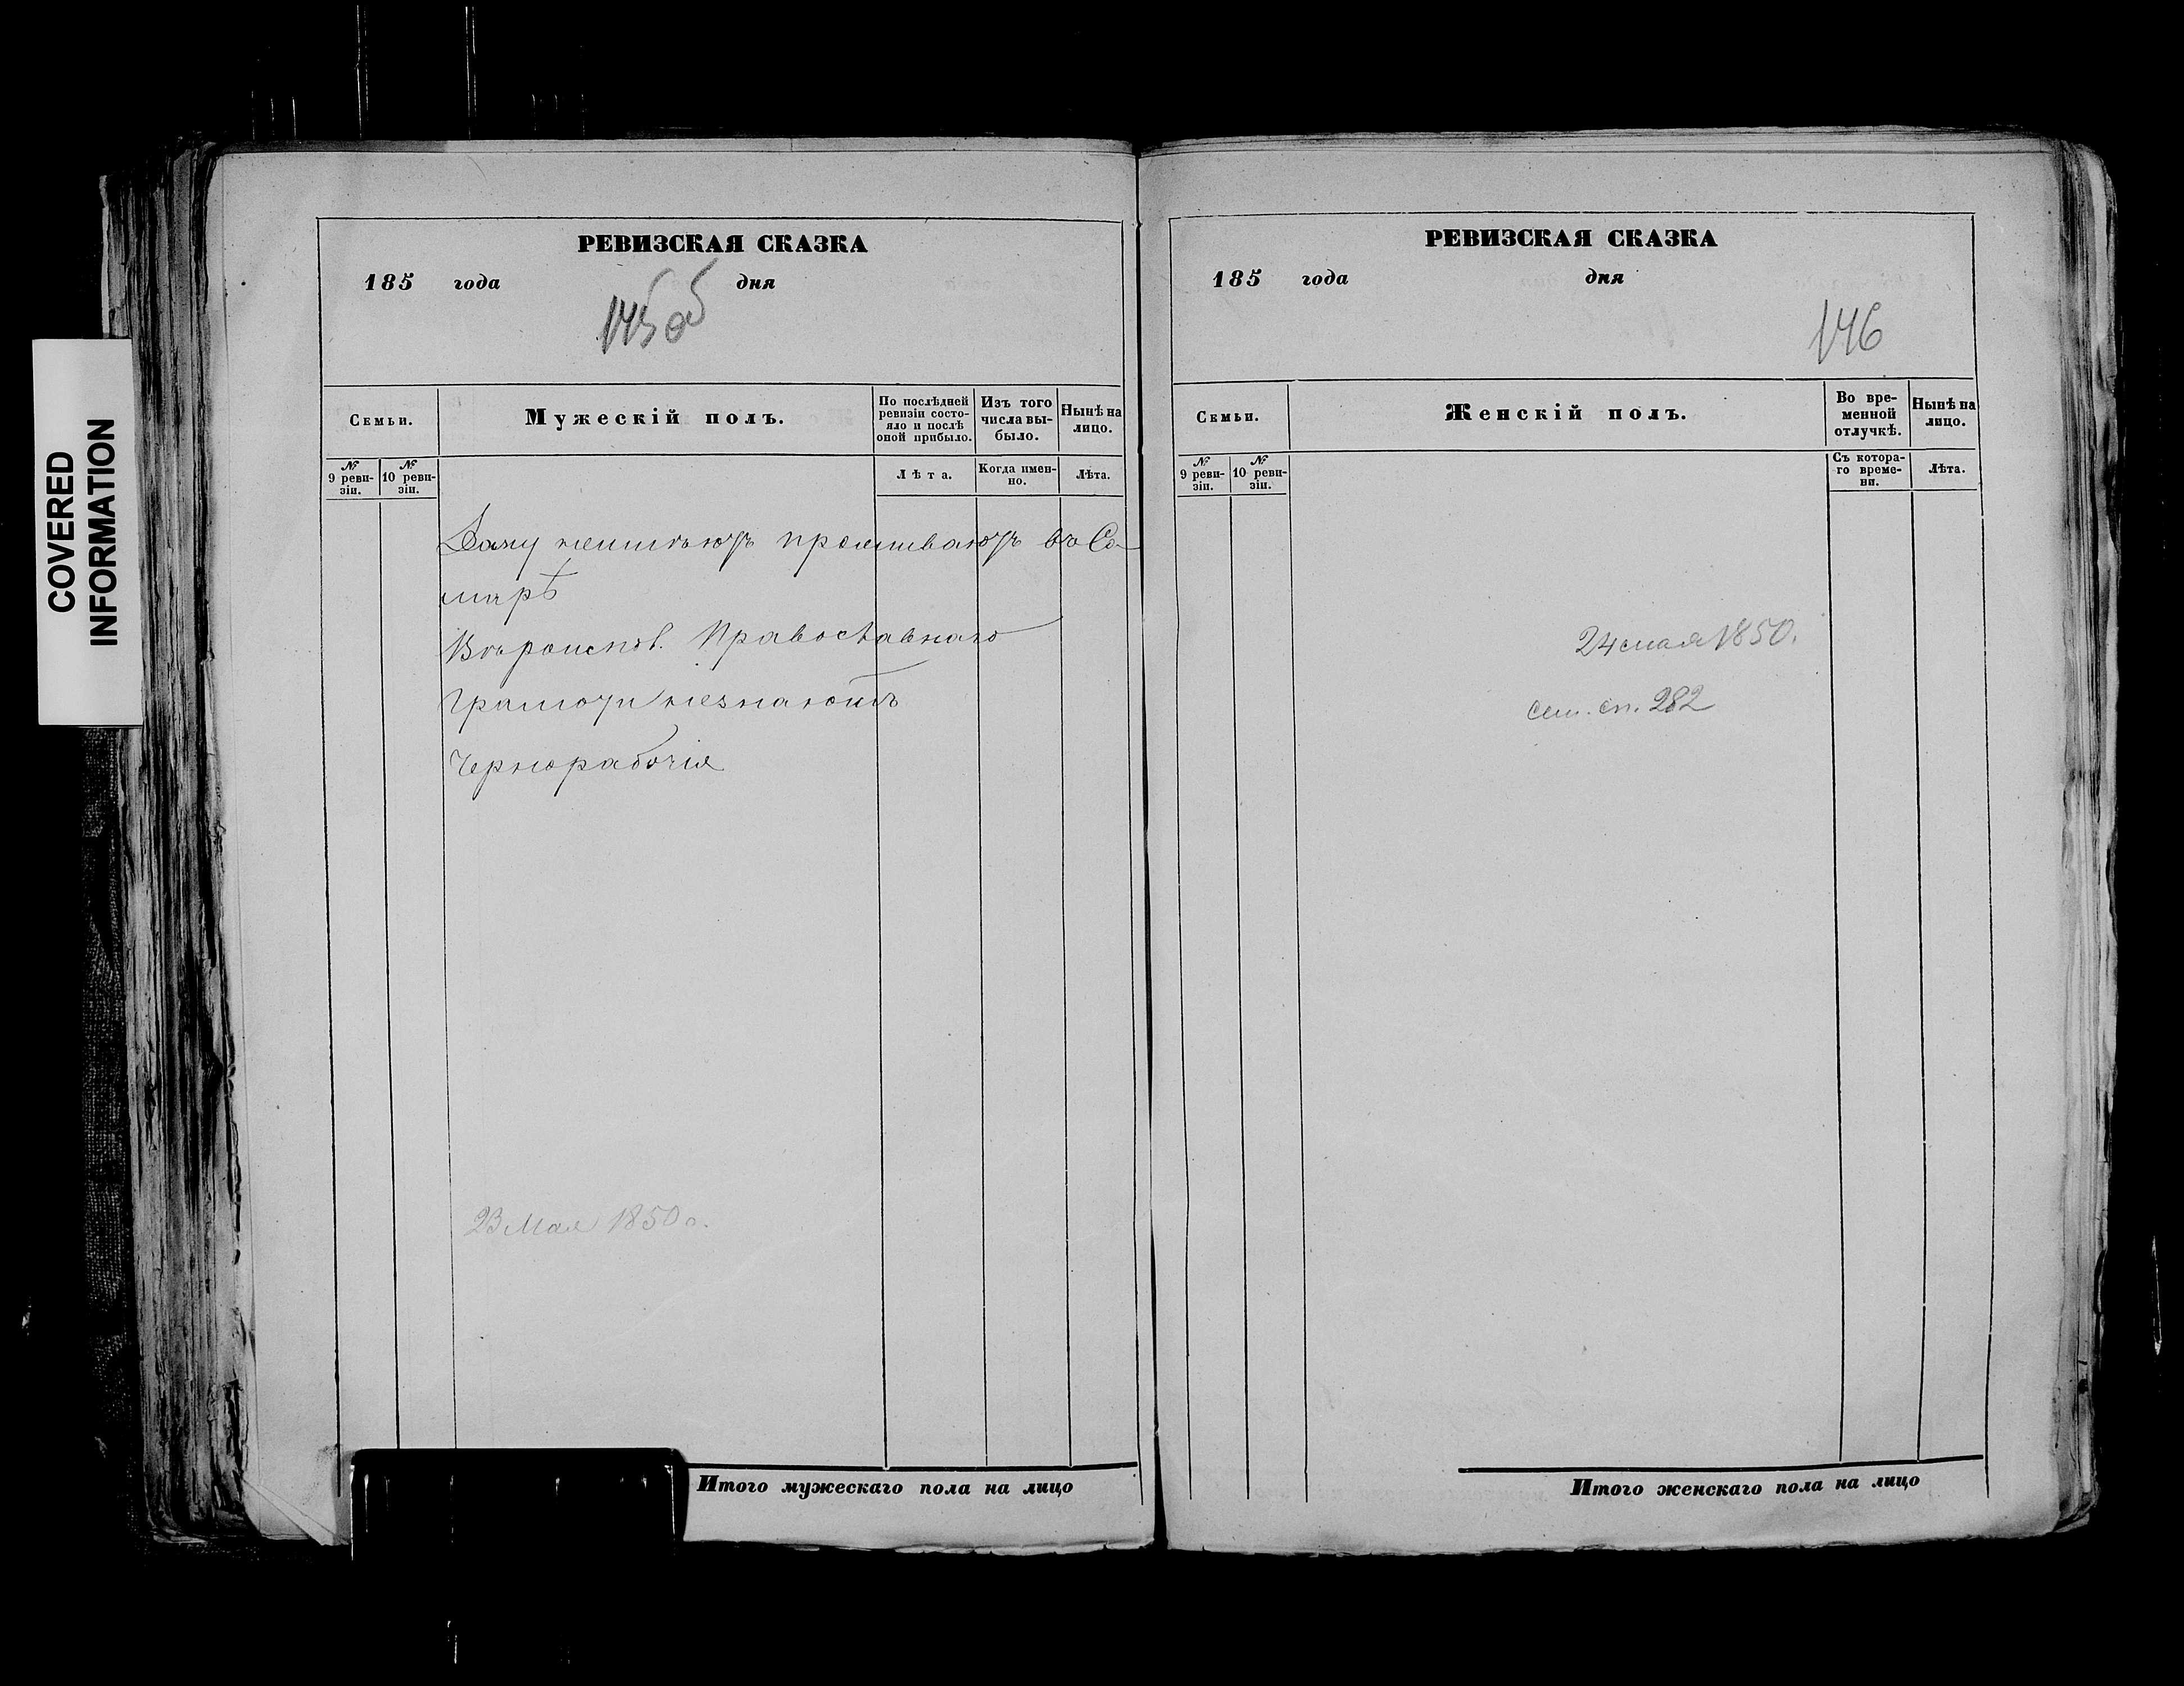 COVERED
INFORMATION
РЕВИЗСКАЯ СКАЗКА
185 года дня
145 об
Семьи.
Мужескій полъ.
По послѣдней ревизіи состо-
яло и послѣ
оной прибыло.
Изъ того
числа вы-
было.
Нынѣ на
лицо.
№
9 реви-
зіи.
№
10 реви-
зіи.
Лѣта.
Когда имен-
но.
Лѣта.
Дому неимѣютъ проживаютъ въ Са-
марѣ
Вѣроиспов. Православнаго
Грамоти незнаютъ
Чернорабочія
23 Мая 1850 г.
Итого мужескаго пола на лицо
РЕВИЗСКАЯ СКАЗКА
185 года дня
146
Семьи.
Женскій полъ.
Во вре-
менной
отлучкѣ.
Нынѣ на
лицо.
№
9 реви-
зіи.
№
10 реви-
зіи.
Съ котора-
го време-
ни.
Лѣта.
24 мая 1850.
сем. сп. 282
Итого женскаго пола на лицо